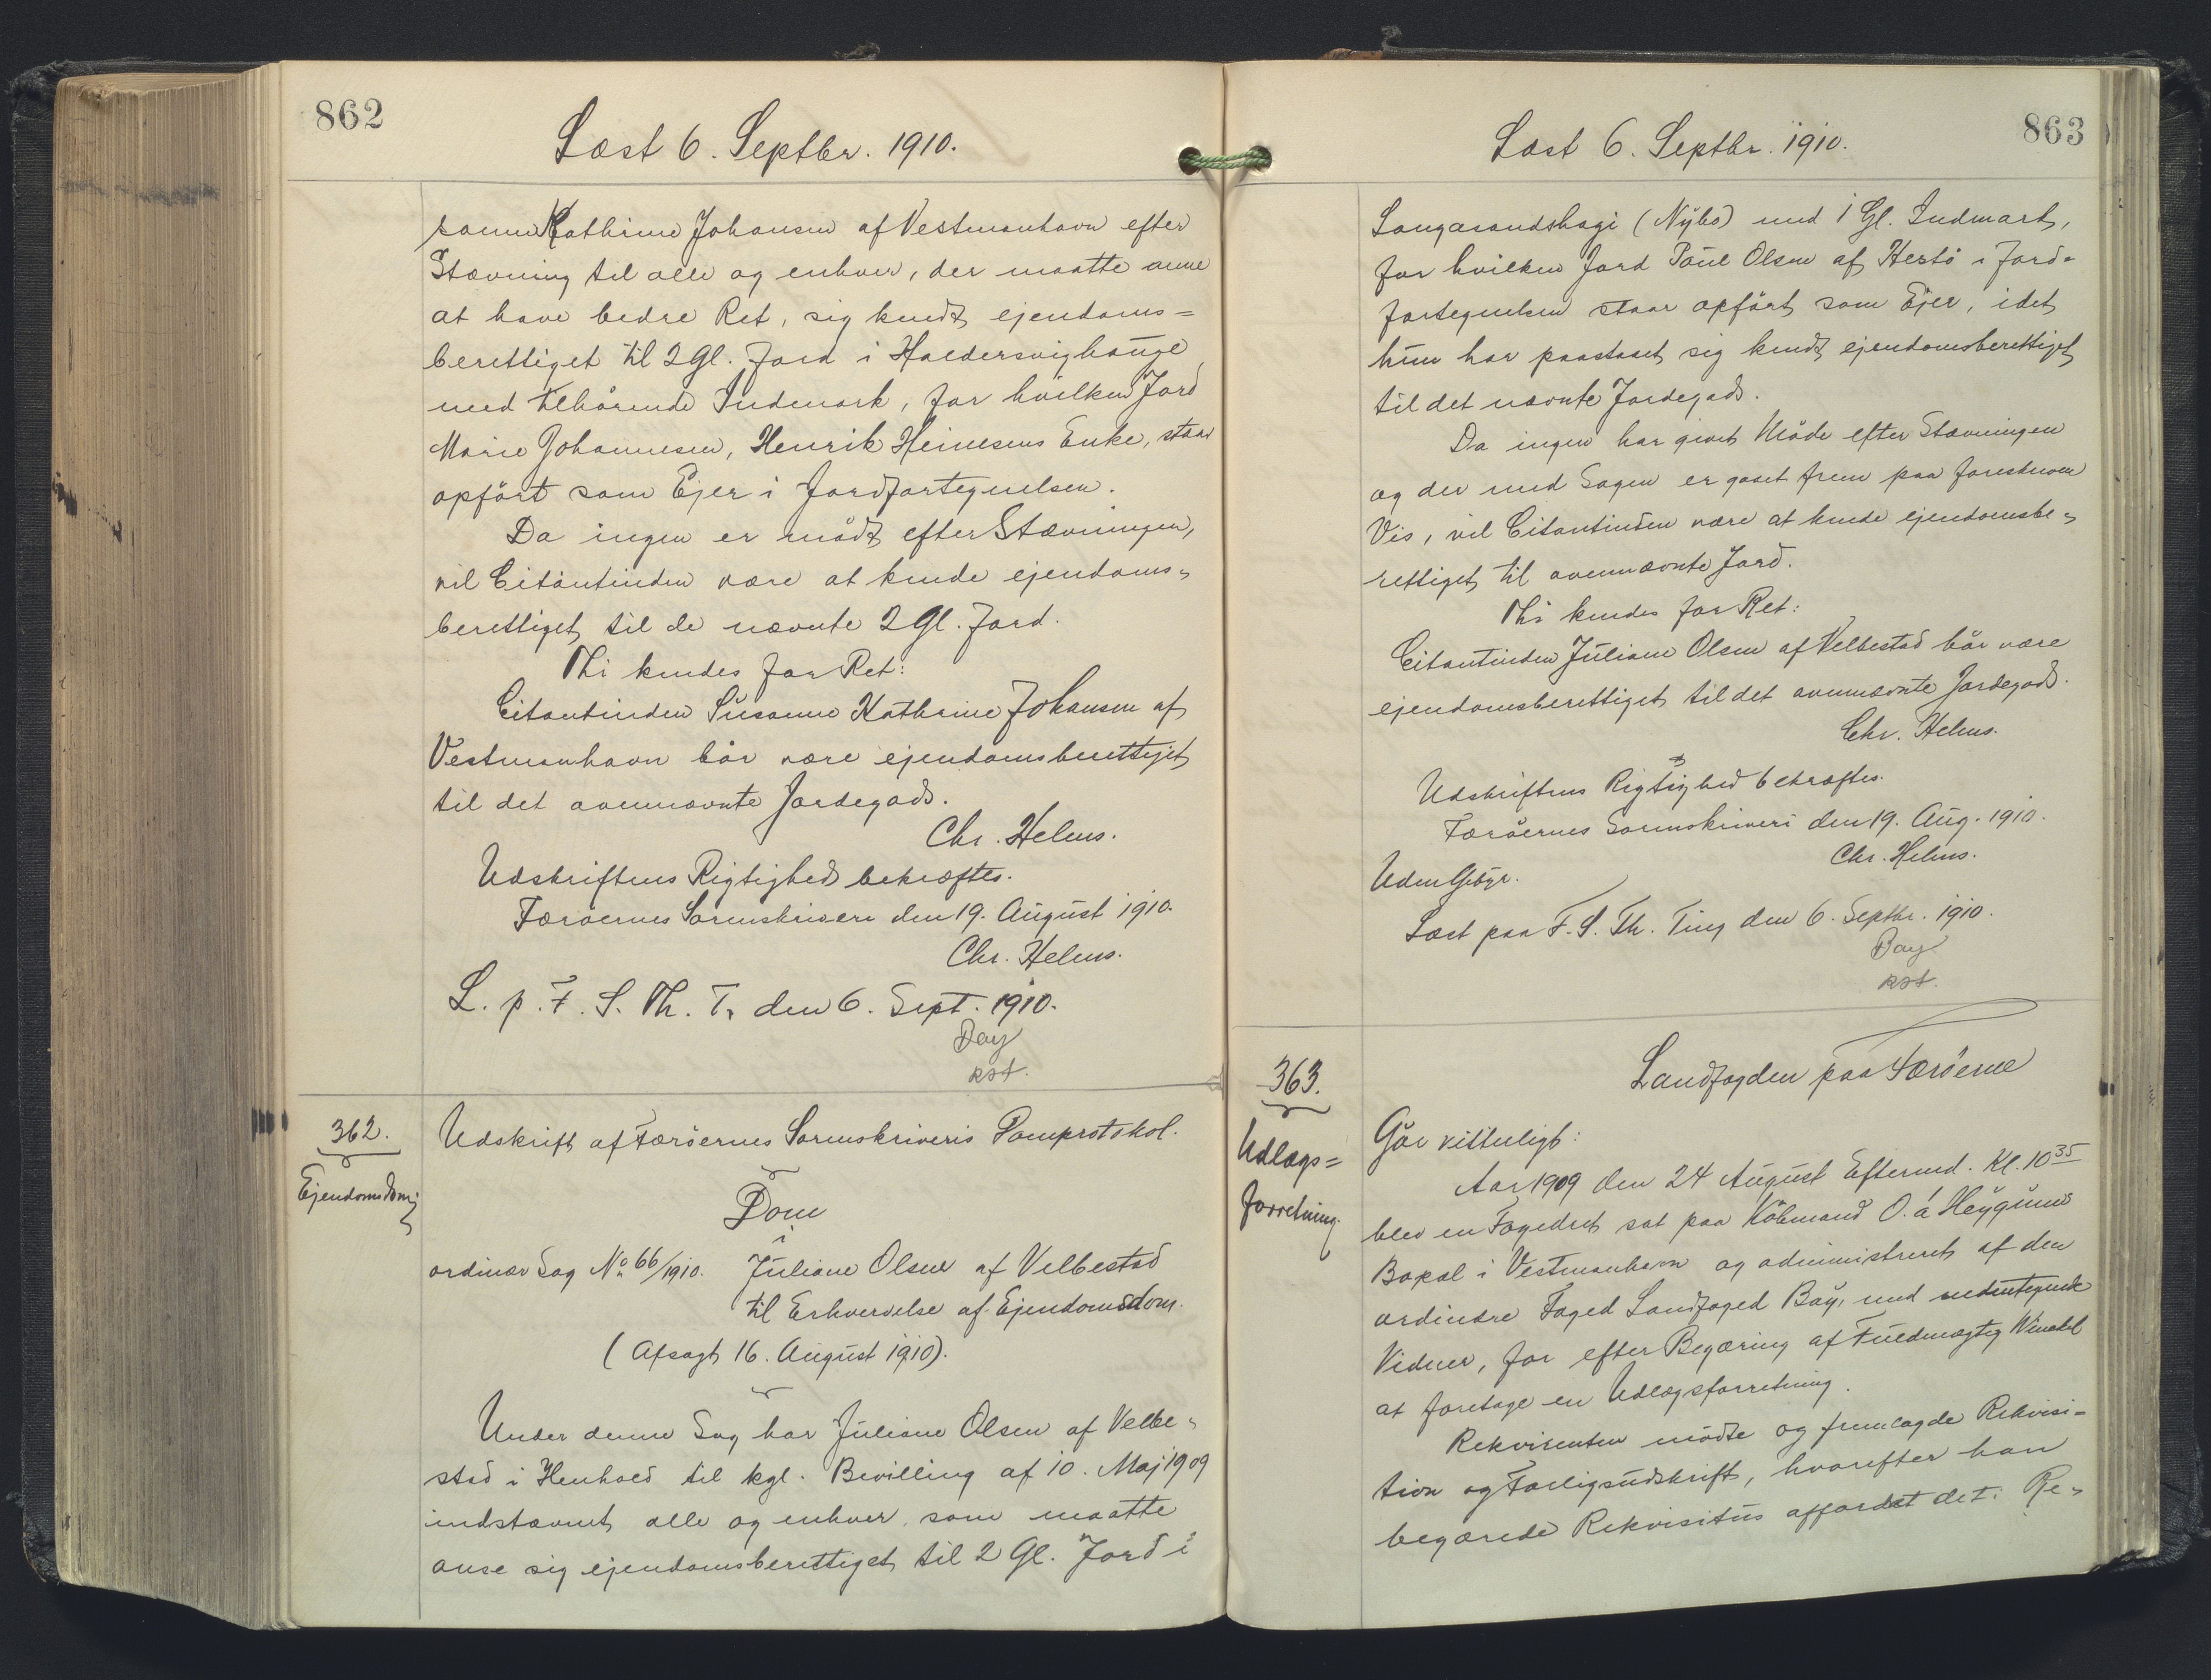 862
Læst 6. Septbr. 1910.
sanne Kathrine Johansen af Vestmanhavn efter
Stævning til alle og enhver, der maatte anse
at have bedre Ret, sig kendt ejendoms=
berettiget til 2 Gl. Jord i Haldersvighauge
med tilhörende Indmark, for hvilken Jord
Marie Johannesen, Henrik Heinesens Enke, staar
opfört som Ejer i Jordfortegnelsen.
Da ingen er mödt efter Stævningen,
vil Citantinden være at kende ejendoms-
berettiget til de nævnte 2 Gl. Jord.
Thi kendes for Ret:
Citantinden Susanne Kathrine Johansen af
Vestmanhavn bör være ejendomsberettiget
til det ovennævnte Jordegods.
Chr. Helms.
Udskriftens Rigtighed bekræftes.
Færöernes Sorenskriveri den 19. August 1910.
Chr. Helms.
L. p. F. S. Th. T. den 6. Sept. 1910.
Bay
kst.
362.
Ejendomsdom
Udskrift af Færöernes Sorenskriveris Domprotokol.
Dom
i
ordinær Sag No 66/1910. Juliane Olsen af Velbestad
til Erhvervelse af Ejendomsdom.
(Afsagt 16. August 1910).
Under denne Sag har Juliane Olsen af Velbe-
stad i Henhold til kgl. Bevilling af 10. Maj 1909
indstævnt alle og enhver som maatte
anse sig ejendomsberettiget til 2 Gl. Jord i
863
Læst 6. Septbr. 1910.
Langasandshagi (Nÿbo) med 1 Gl. Indmark,
for hvilken Jord Poul Olsen af Hestö i Jord=
fortegnelsen staar opfört som Ejer, idet
hun har paastaaet sig kendt ejendomsberettiget
til det nævnte Jordegods.
Da ingen har givet Möde efter Stævningen
og der med Sagen er gaaet frem paa foreskreven
Vis, vil Citantinden være at kende ejendomsbe-
rettiget til ovennævnte Jord.
Thi kendes for Ret:
Citantinden Juliane Olsen af Velbestad bör være
ejendomsberettiget til det ovennævnte Jordegods.
Chr. Helms.
Udskriftens Rigtighed bekræftes.
Færöernes Sorenskriveri den 19. Aug. 1910.
Chr. Helms.
Uden Gebyr.
Læst paa F. S. Th. Ting den 6. Septbr. 1910.
Bay
kst.
363.
Udlægs=
forretning.
Landfogden paa Færöerne
Gör vitterligt:
Aar 1909 den 24 August Eftermd. Kl. 10 35
blev en Fogedret sat paa Köbmand O. á Heÿgums
Bopæl i Vestmanhavn og administreret af den
ordinære Foged Landfoged Baÿ, med undertegnede
Vidner, for efter Begæring af Fuldmægtig Winckel
at foretage en Udlægsforretning.
Rekvirenten mödte og fremlagde Rekvisi=
tion og Forligsudskrift, hvorefter han
begærede Rekvisitus affordret det. Re-